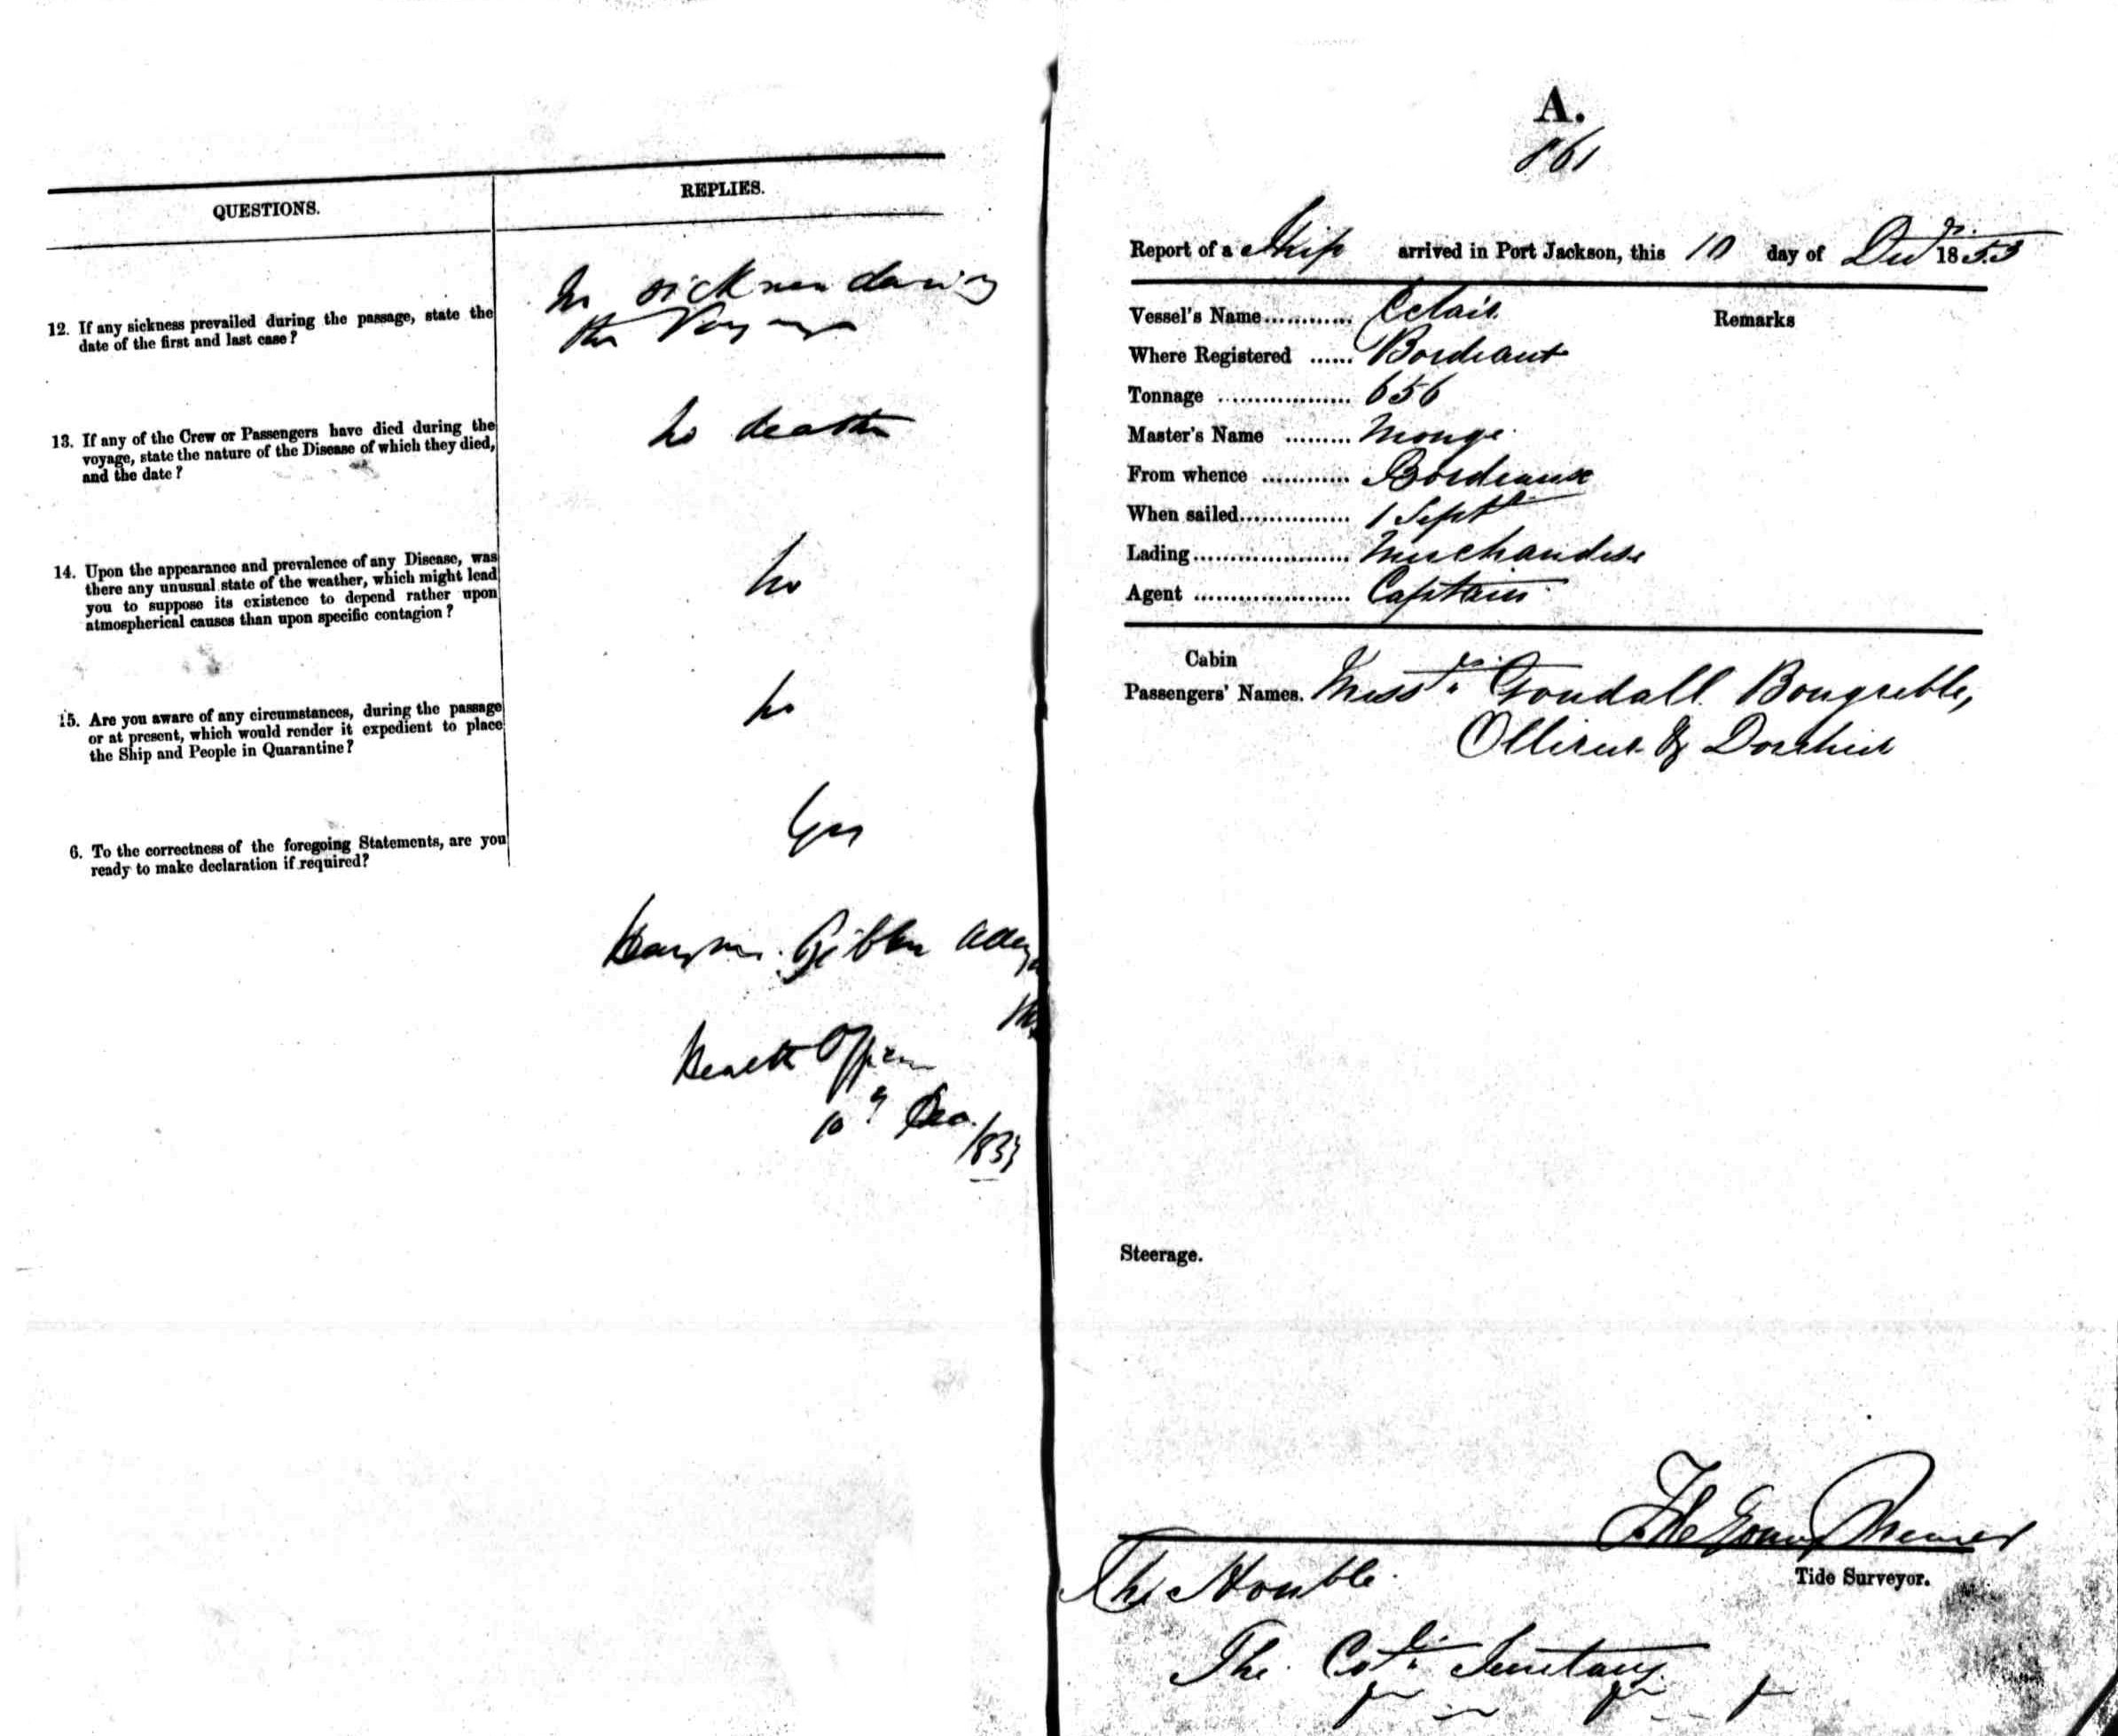 QUESTIONS.
REPLIES.
12. If any sickness prevailed during the passage, state the
date of the first and last case?
No sickness during
the Voyage
13. If any of the Crew or Passengers have died during the
voyage, state the nature of the Disease of which they died,
and the date?
No death
14. Upon the appearance and prevalence of any Disease, was
there any unusual state of the weather, which might lead
you to suppose its existence to depend rather upon
atmospherical causes than upon specific contagion?
No
15. Are you aware of any circumstances, during the passage
or at present, which would render it expedient to place
the Ship and People in Quarantine?
No
6. To the correctness of the foregoing Statements, are you
ready to make declaration if required?
Yes
Health Officer
10 Dec.
1853
A.
861
Report of a Ship arrived in Port Jackson, this 10 day of Decr. 1853
Vessel's Name............ Eclair
Remarks
Where Registered ...... Bordeaux
Tonnage .................. 656
Master's Name ......... Monge
From whence ............ Bordeaux
When sailed............... 1 Septr
Lading..................... Merchandise
Agent ..................... Captain
Cabin
Passengers' Names. Messrs. Goudall
Steerage.
Tide Surveyor.
The Honble.
The Col. Secretary